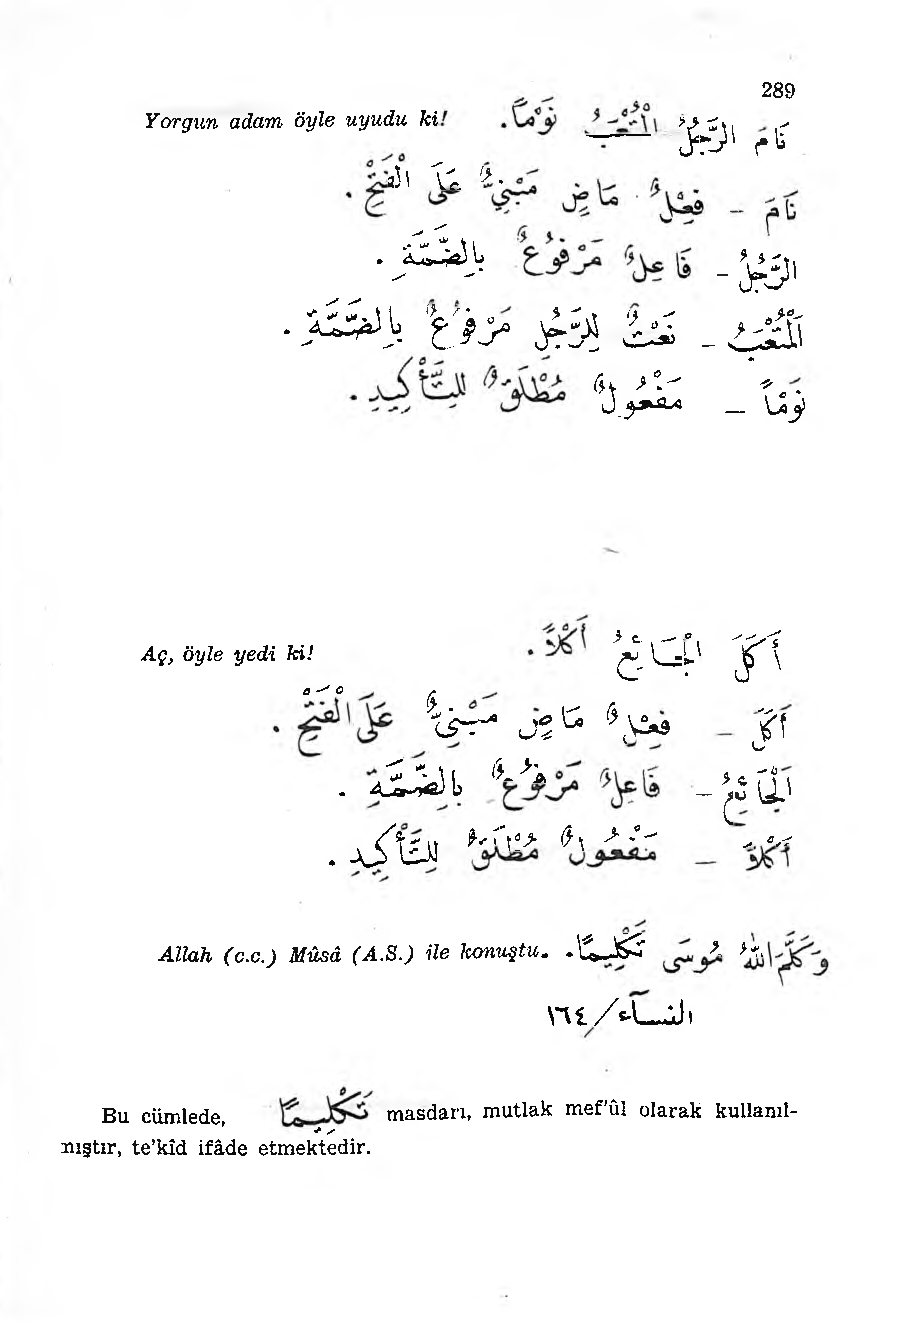 289
Yorgun adam öyle uyudu ki! نَامَ الرَّجُلُ الْمُتْعَبُ نَوْمًا.
نَامَ – فِعْلٌ مَاضٍ مَبْنِيٌّ عَلَى الْفَتْحِ.
الرَّجُلُ – فَاعِلٌ مَرْفُوعٌ بِالضَّمَّةِ.
اَلْمُتْعَبُ – نَعْتٌ لِلرَّجُلِ مَرْفُوعٌ بِالضَّمَّةِ.
نَوْمًا – مَفْعُولٌ مُطْلَقٌ لِلتَّأْكِيدِ.
Aç, öyle yedi ki! أَكَلَ الْجَائِعُ أَكْلاً.
أَكَلَ – فِعْلٌ مَاضٍ مَبْنِيٌّ عَلَى الْفَتْحِ.
اَلْجَائِعُ – فَاعِلٌ مَرْفُوعٌ بِالضَّمَّةِ.
أَكْلاً – مَفْعُولٌ مُطْلَقٌ لِلتَّأْكِيدِ.
Allah (c.c.) Mûsâ (A.S.) ile konuştu. وَكَلَّمَ اللّٰهُ مُوسَى تَكْلِيمًا.
النسآء/١٦٤
Bu cümlede, تَكْلِيمًا masdarı, mutlak mef'ûl olarak kullanıl-
mıştır, te'kîd ifâde etmektedir.